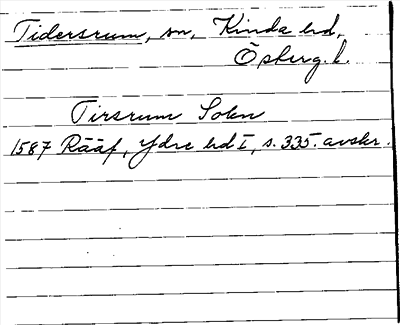 Tidersrum, sn, Kinda hd,
Östergl.
Tirsrum Sokn
1587 Rääf, Ydre hd I, s. 335. avskr.